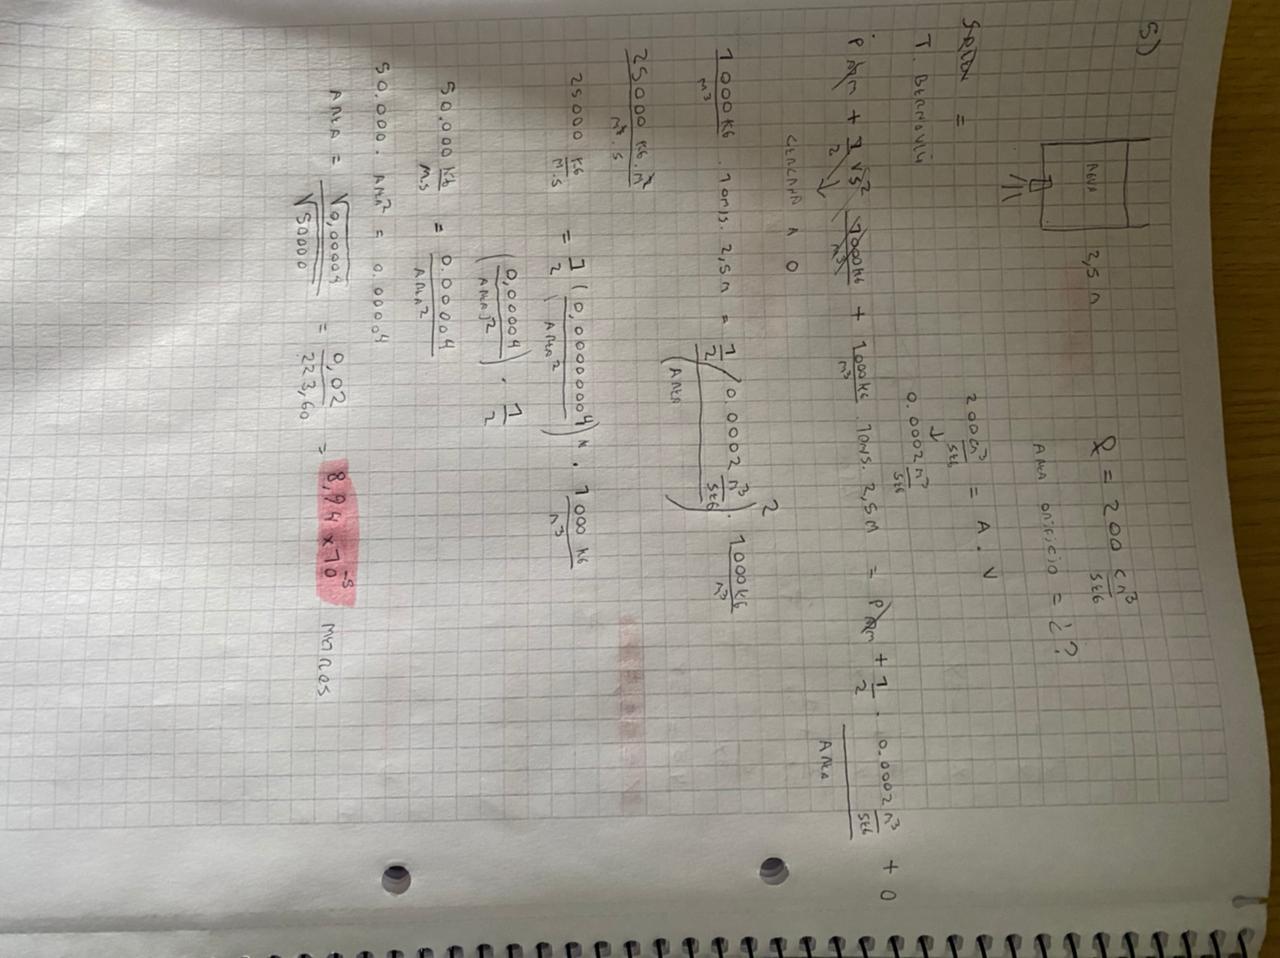 5)
AGUA
2,5 m
Q = 200 cm³/seg
Area orificio = ¿?
200 cm³/seg = A . V
↓
0.0002 m³/seg
T. Bernoulli
Patm + 1/2 V5² 1000kg/m³ + 1000kg/m³ . 10m/s . 2,5m = Patm + 1/2 . 0.0002 m³/seg / Area + 0
cercana a 0
1000kg/m³ . 10m/s . 2,5m = 1/2 (0.0002 m³/seg / Area)² . 1000kg/m³
25000 kg.m²/m³.s
25000 kg/m.s = 1/2 (0,00000004 / Area²) . 1000 kg/m³
(0,00004 / Area)² . 1/2
50.000 kg/ms = 0.00004 / Area²
50.000 . Area² = 0.00004
Area = √0,00004 / √50000 = 0,02 / 223,60 = 8,94 x 10⁻⁵ metros